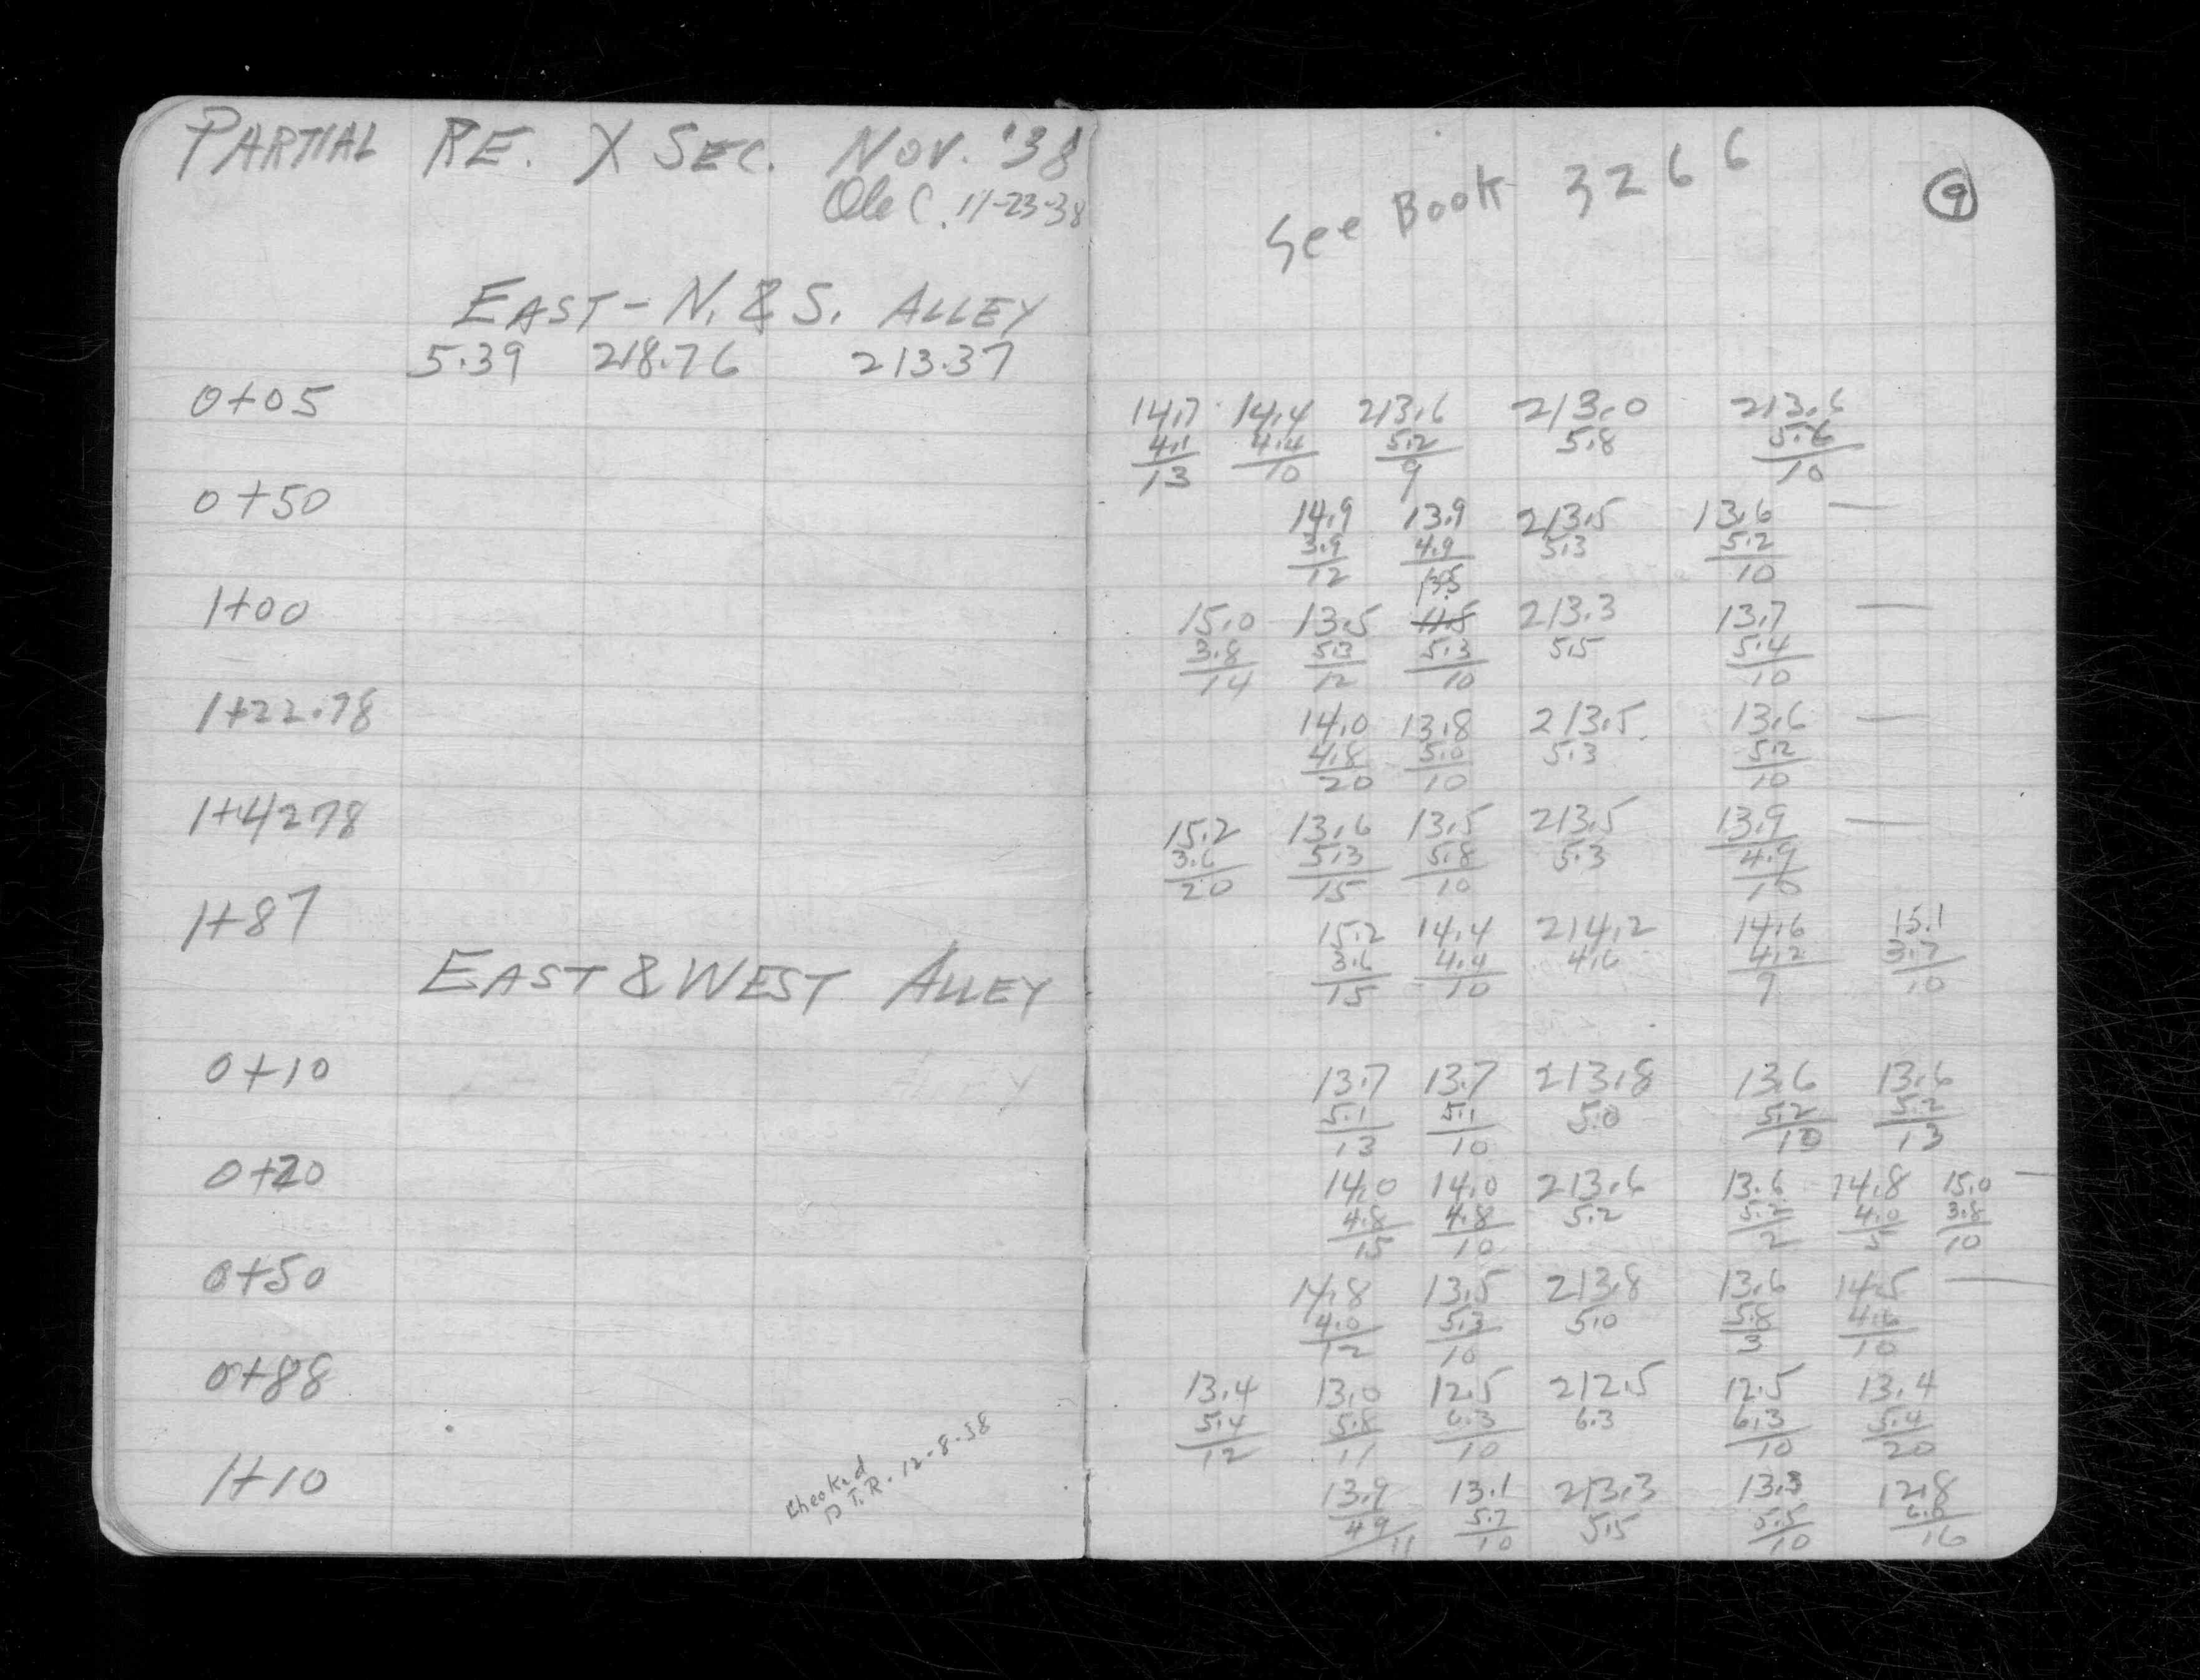 PARTIAL RE. X SEC. NOV. '38
Ole C. 11-23-38
EAST - N. & S. ALLEY
5.39 218.76 213.37
0+05
0+50
1+00
1+22.78
1+4278
1+87
EAST & WEST ALLEY
0+10
0+20
0+50
0+88
1+10
Checked
D.T.R. 12-8-38
See Book 3266
9
14.7 14.4 213.6 213.0 213.6
4.1 4.4 5.2 5.8 5.6
13 10 9 10
14.9 13.9 213.5 13.6 —
3.9 4.9 5.3 5.2
12 10 10
13.5
15.0 13.5 11.8 213.3 13.7 —
3.8 5.3 5.3 5.5 5.4
14 12 10 10
14.0 13.8 213.5 13.6 —
4.8 5.0 5.3 5.2
20 10 10
15.2 13.6 13.5 213.5 13.9 —
3.6 5.3 5.8 5.3 4.9
20 15 10 10
15.2 14.4 214.2 14.6 15.1
3.6 4.4 4.6 4.2 3.7
15 10 9 10
13.7 13.7 213.8 13.6 13.6
5.1 5.1 5.0 5.2 5.2
13 10 10 13
14.0 14.0 213.6 13.6 14.8 15.0 —
4.8 4.8 5.2 5.2 4.0 3.8
15 10 2 5 10
14.8 13.5 213.8 13.6 14.5 —
4.0 5.3 5.0 5.8 4.6
12 10 3 10
13.4 13.0 12.5 212.5 12.5 13.4
5.4 5.8 6.3 6.3 6.3 5.4
12 11 10 10 20
13.9 13.1 213.3 13.3 12.8
4.9 5.7 5.5 5.5 6.0
11 10 10 16